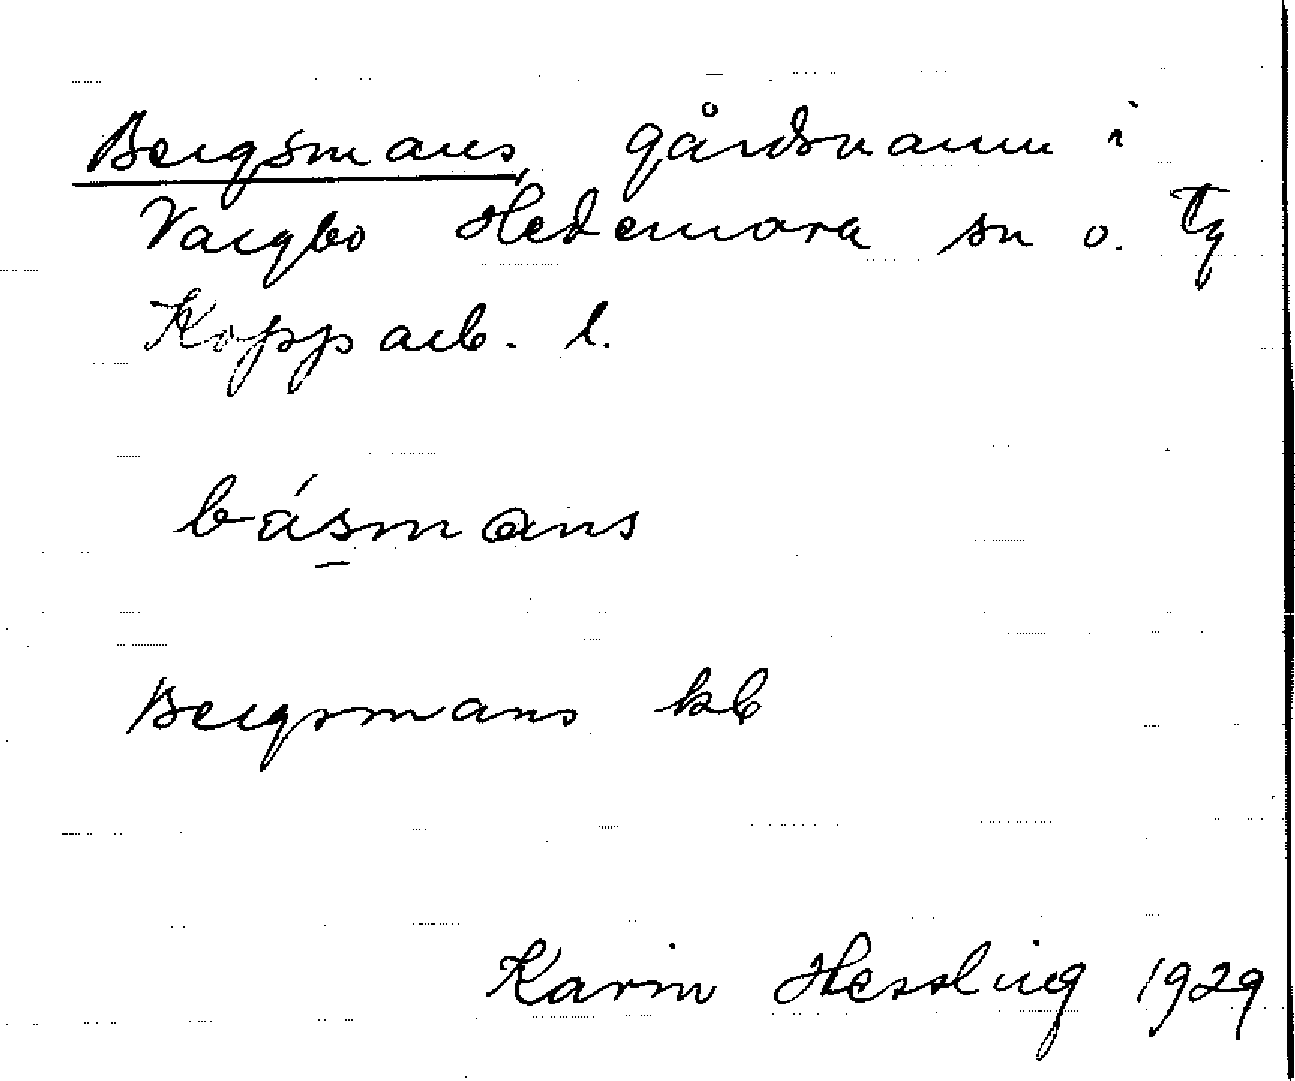 Bergsmans, gårdsnamn i
Vargbo Hedemora sn o. Tg
Kopparb. l.
básmans
Bergsmans kb
Karin Hessling 1929